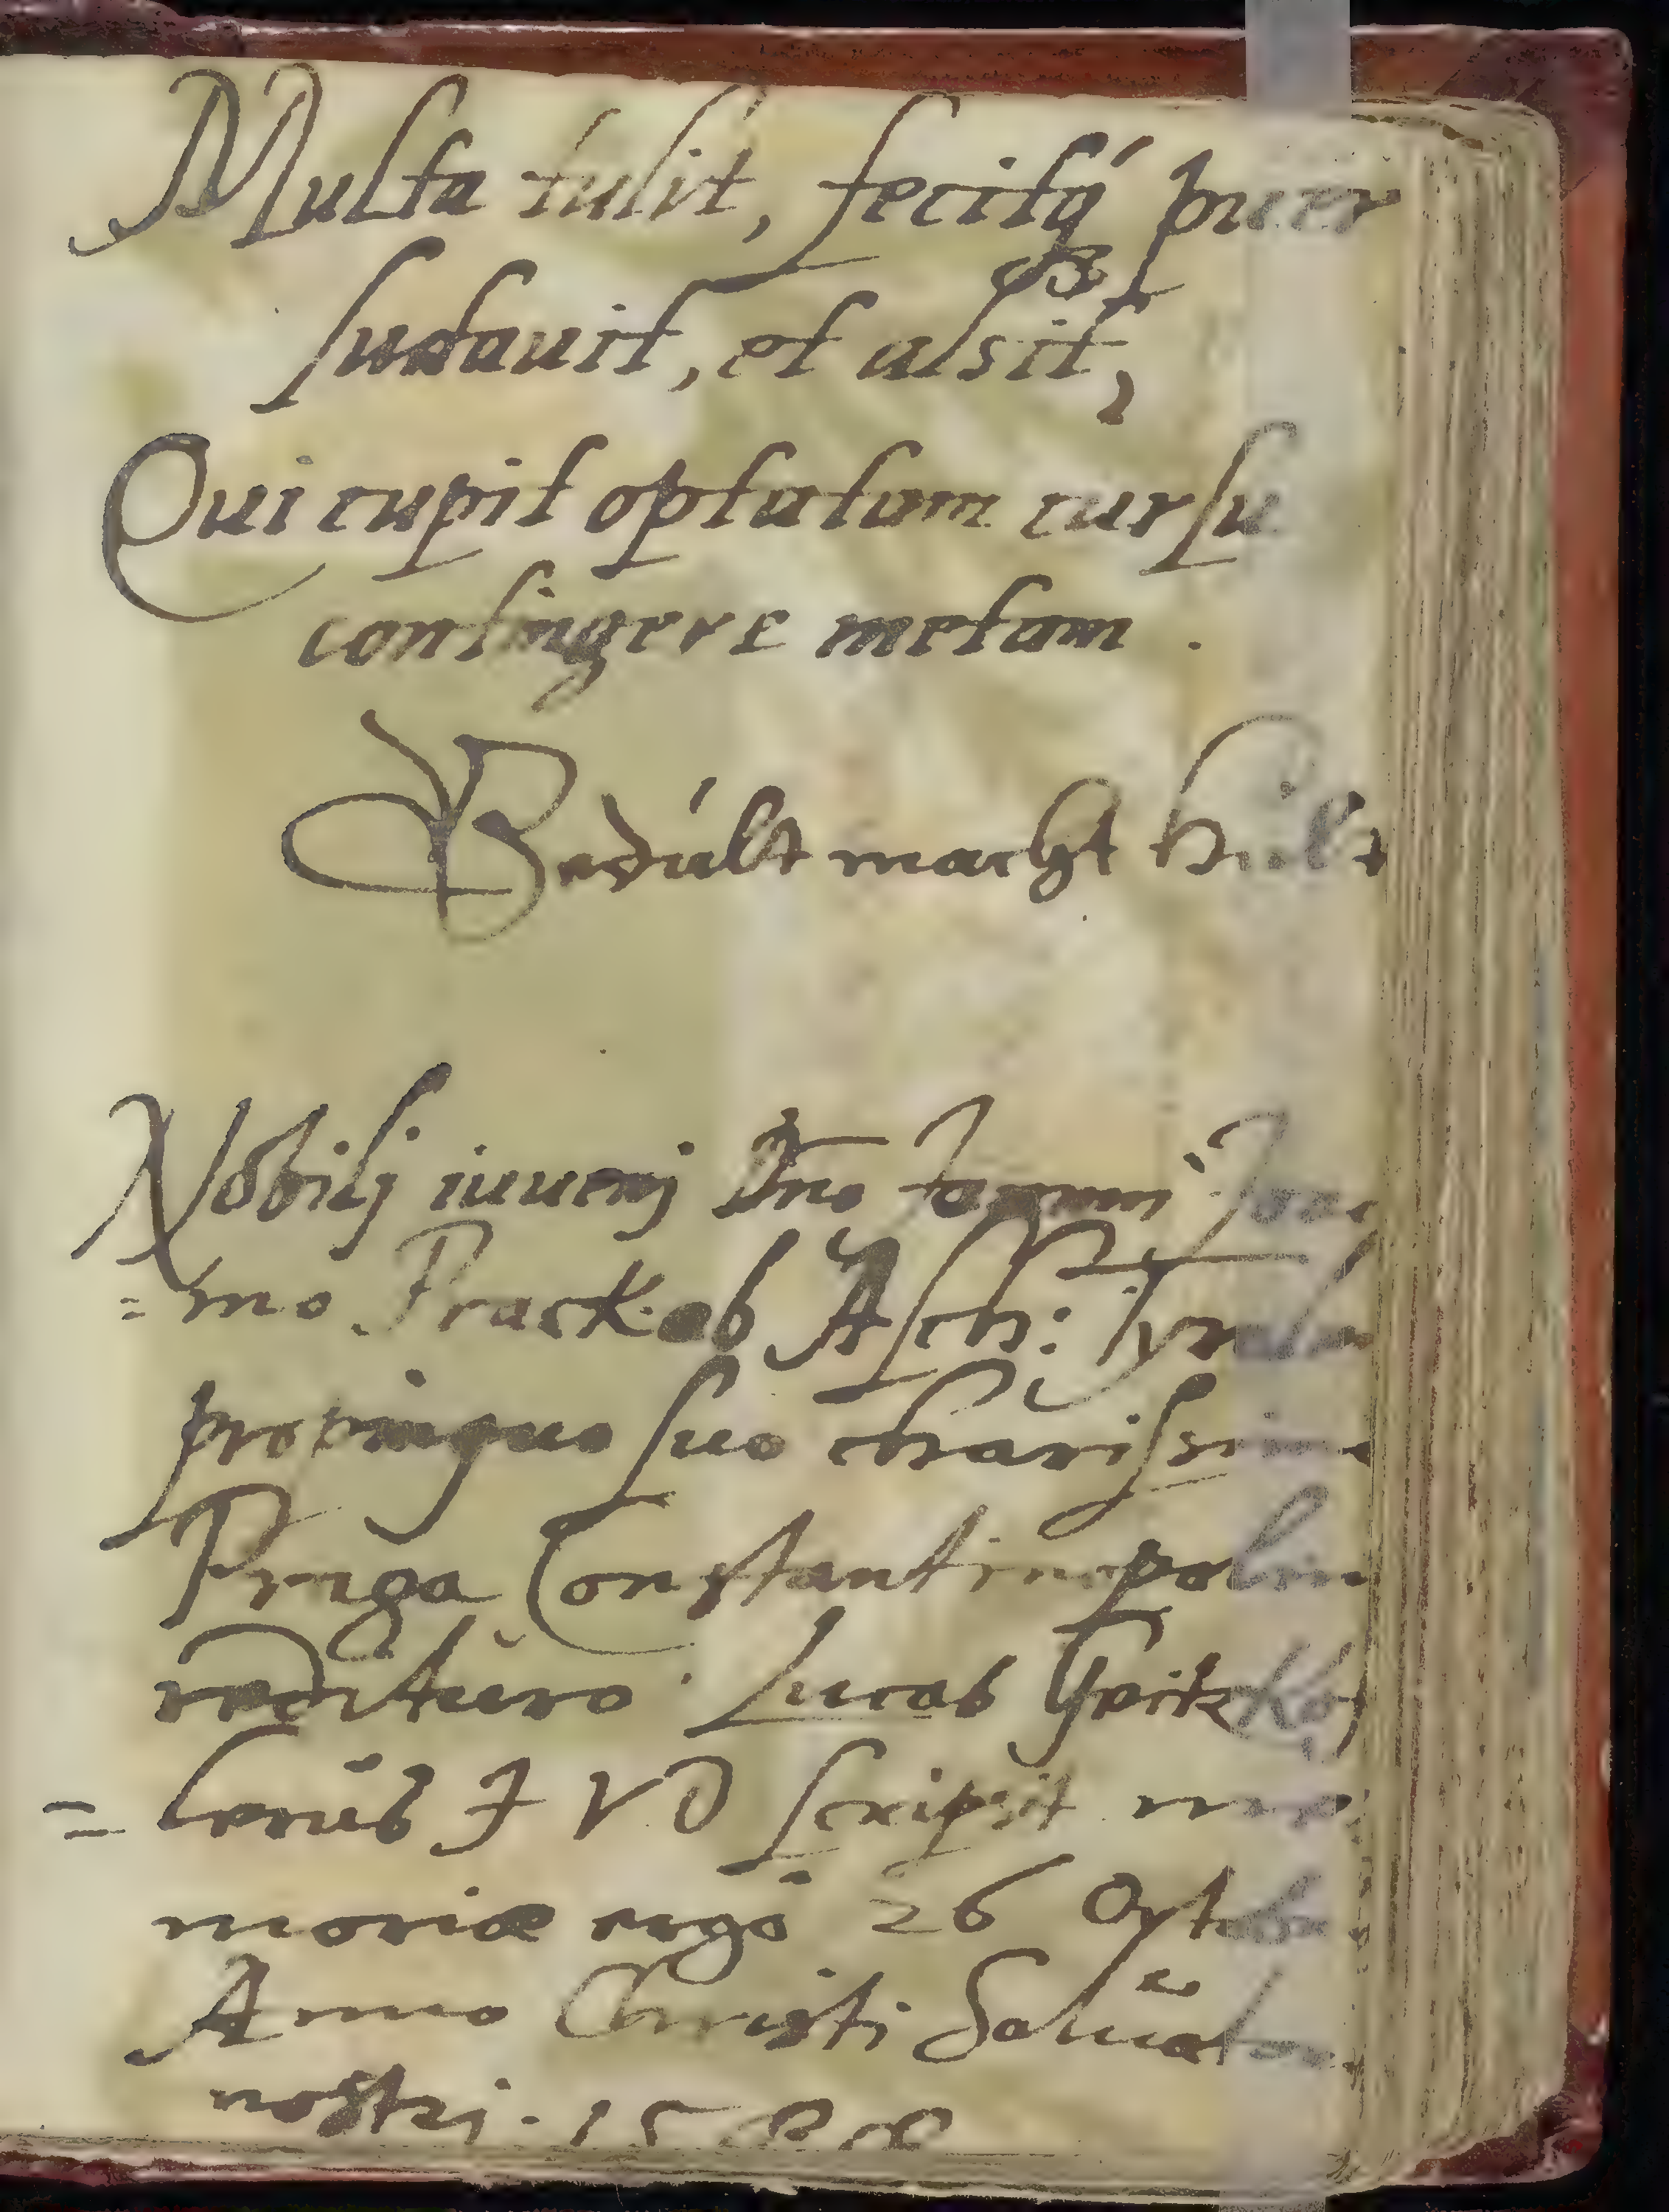 Multa tulit, fecitq́ꝫ puer
sudauit, et alsit,
Qui cupit optatam cursu
contingere metam .
Gedúlt macht
Nobilj iuuenj Dno
=mo Prack ab Asch:
propinquo suo charissimo
Praga Constantinopolim
redituro. Lucas Geitzkof
=lerus I V D scripsit me
moriæ ergò 26 Octob
Anno Christi Saluator
nostrj. 1588